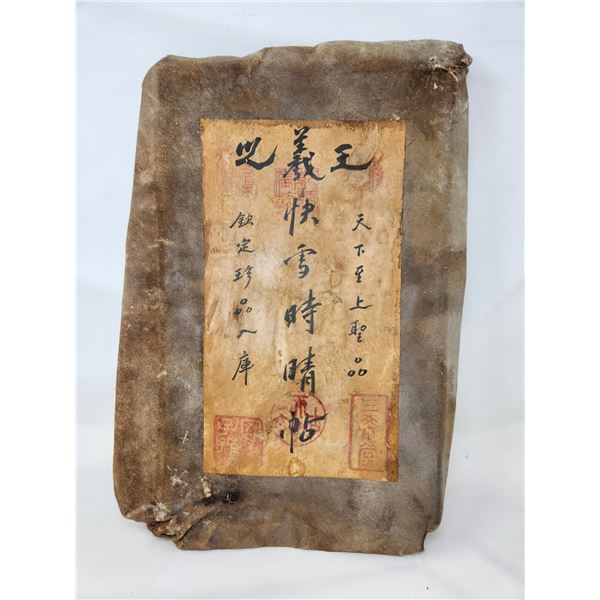 王羲之
天下至上聖品
快雪時晴帖
欽定珍品入庫
三希堂